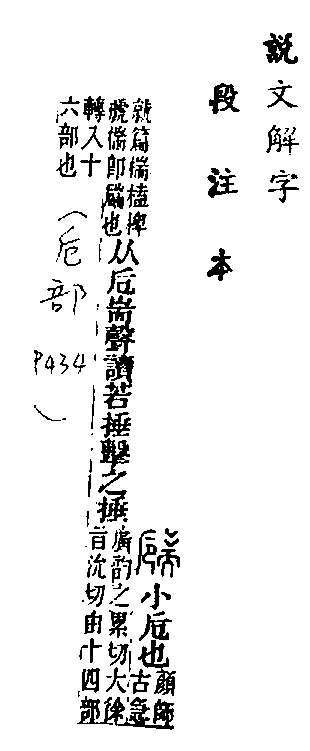 說文解字
段注本
小卮也
顏師
古急
就篇榼椑
卽也
从卮耑聲讀若捶擊之捶
廣韵之累切大徐
旨沇切由十四部
轉入十
六部也
(卮部 P434)